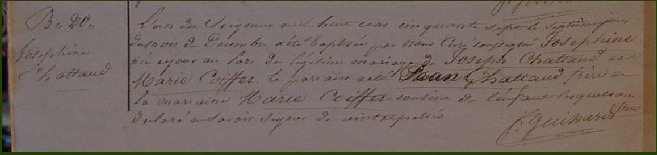 B. 20.
Josephine
Chattaud
L'an du Seigneur mil huit cent cinquante sept le septieme jour
du mois de Decembre a été baptisée par nous Curé soussigné Josephine
née ce jour au lieu de légitime mariage de Joseph Chattaud et
Marie Coiffer, le parrain a été Jean Chattaud frère
la marraine Marie Coiffer cousine de l'enfant lesquels ont
déclaré ne savoir signer de ce interpellés
J. Guimard